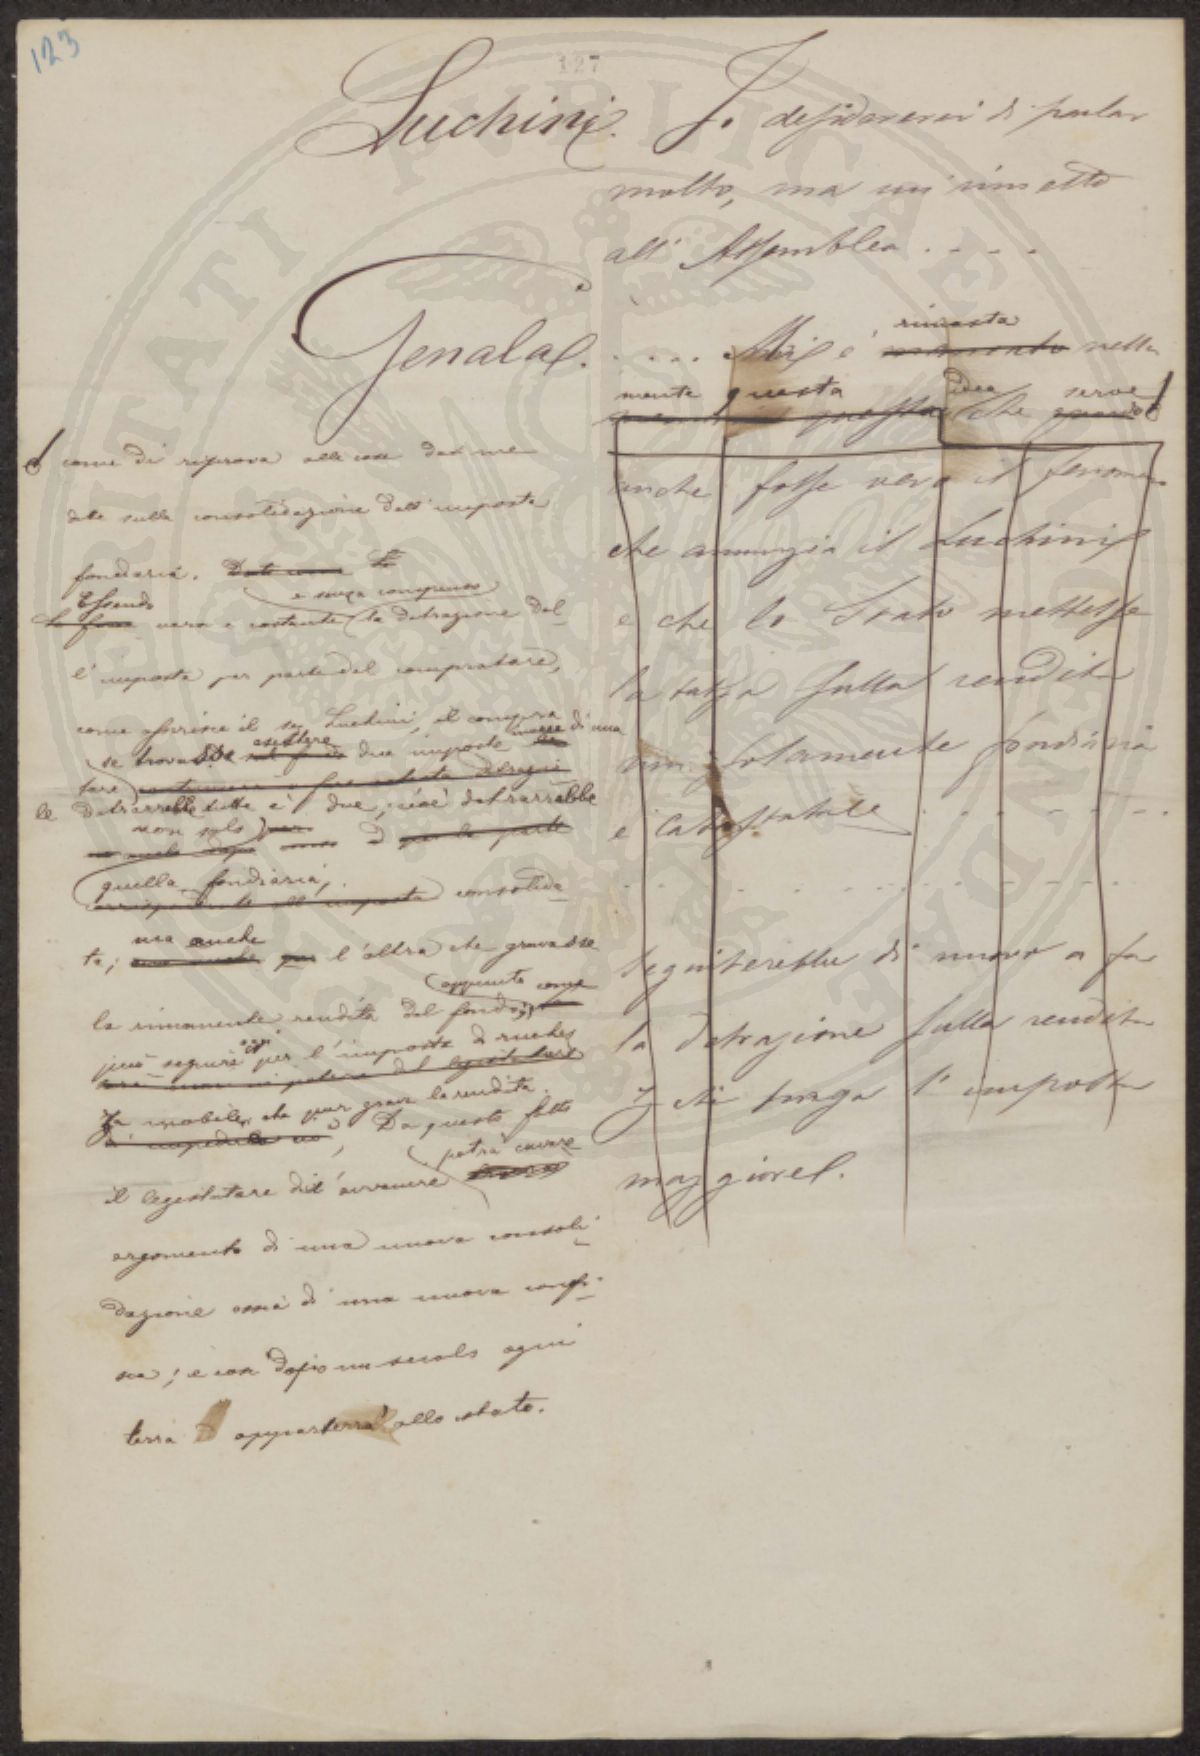 123
127
Luchini. Io desidererei di parlar
molto, ma mi rimetto
all' Assemblea . . . .
Genala. . . . . Mi è rimasta nella
mente questa idea che serve
anche fosse vero il fenomeno
che annunzia il Luchini
e che lo Stato mettesse
la tassa sulla rendita
non solamente fondiaria
e catastale . . . . .
. . . . . . . . . .
Seguiterebbe di nuovo a far
la detrazione sulla rendita
chi paga l'imposta
maggiore.
come di riprova alle cose da me
dette sulla consolidazione dell'imposta
fondiaria.
Essendo vera e costante e senza compenso la detrazione del
l'imposta per parte del compratore,
come asserisce il sig. Luchini, il compra
tore se trovasse esistere due imposte invece di una
le detrarrebbe tutte e due, cioè detrarrebbe
non solo
quella fondiaria, consolida
ta; ma anche l'altra che gravasse
la rimanente rendita del fondo; appunto come
può seguire oggi per l'imposta di ricchez
za mobile, che pur grava la rendita.
Da questo fatto
il legislatore dell'avvenire potrà cavare
argomento di una nuova consoli
dazione ossia di una nuova confi
sca; e così dopo un secolo ogni
terra apparterrà allo stato.